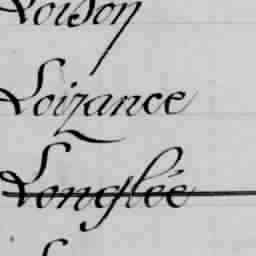 Loison
Loizance
Longlée